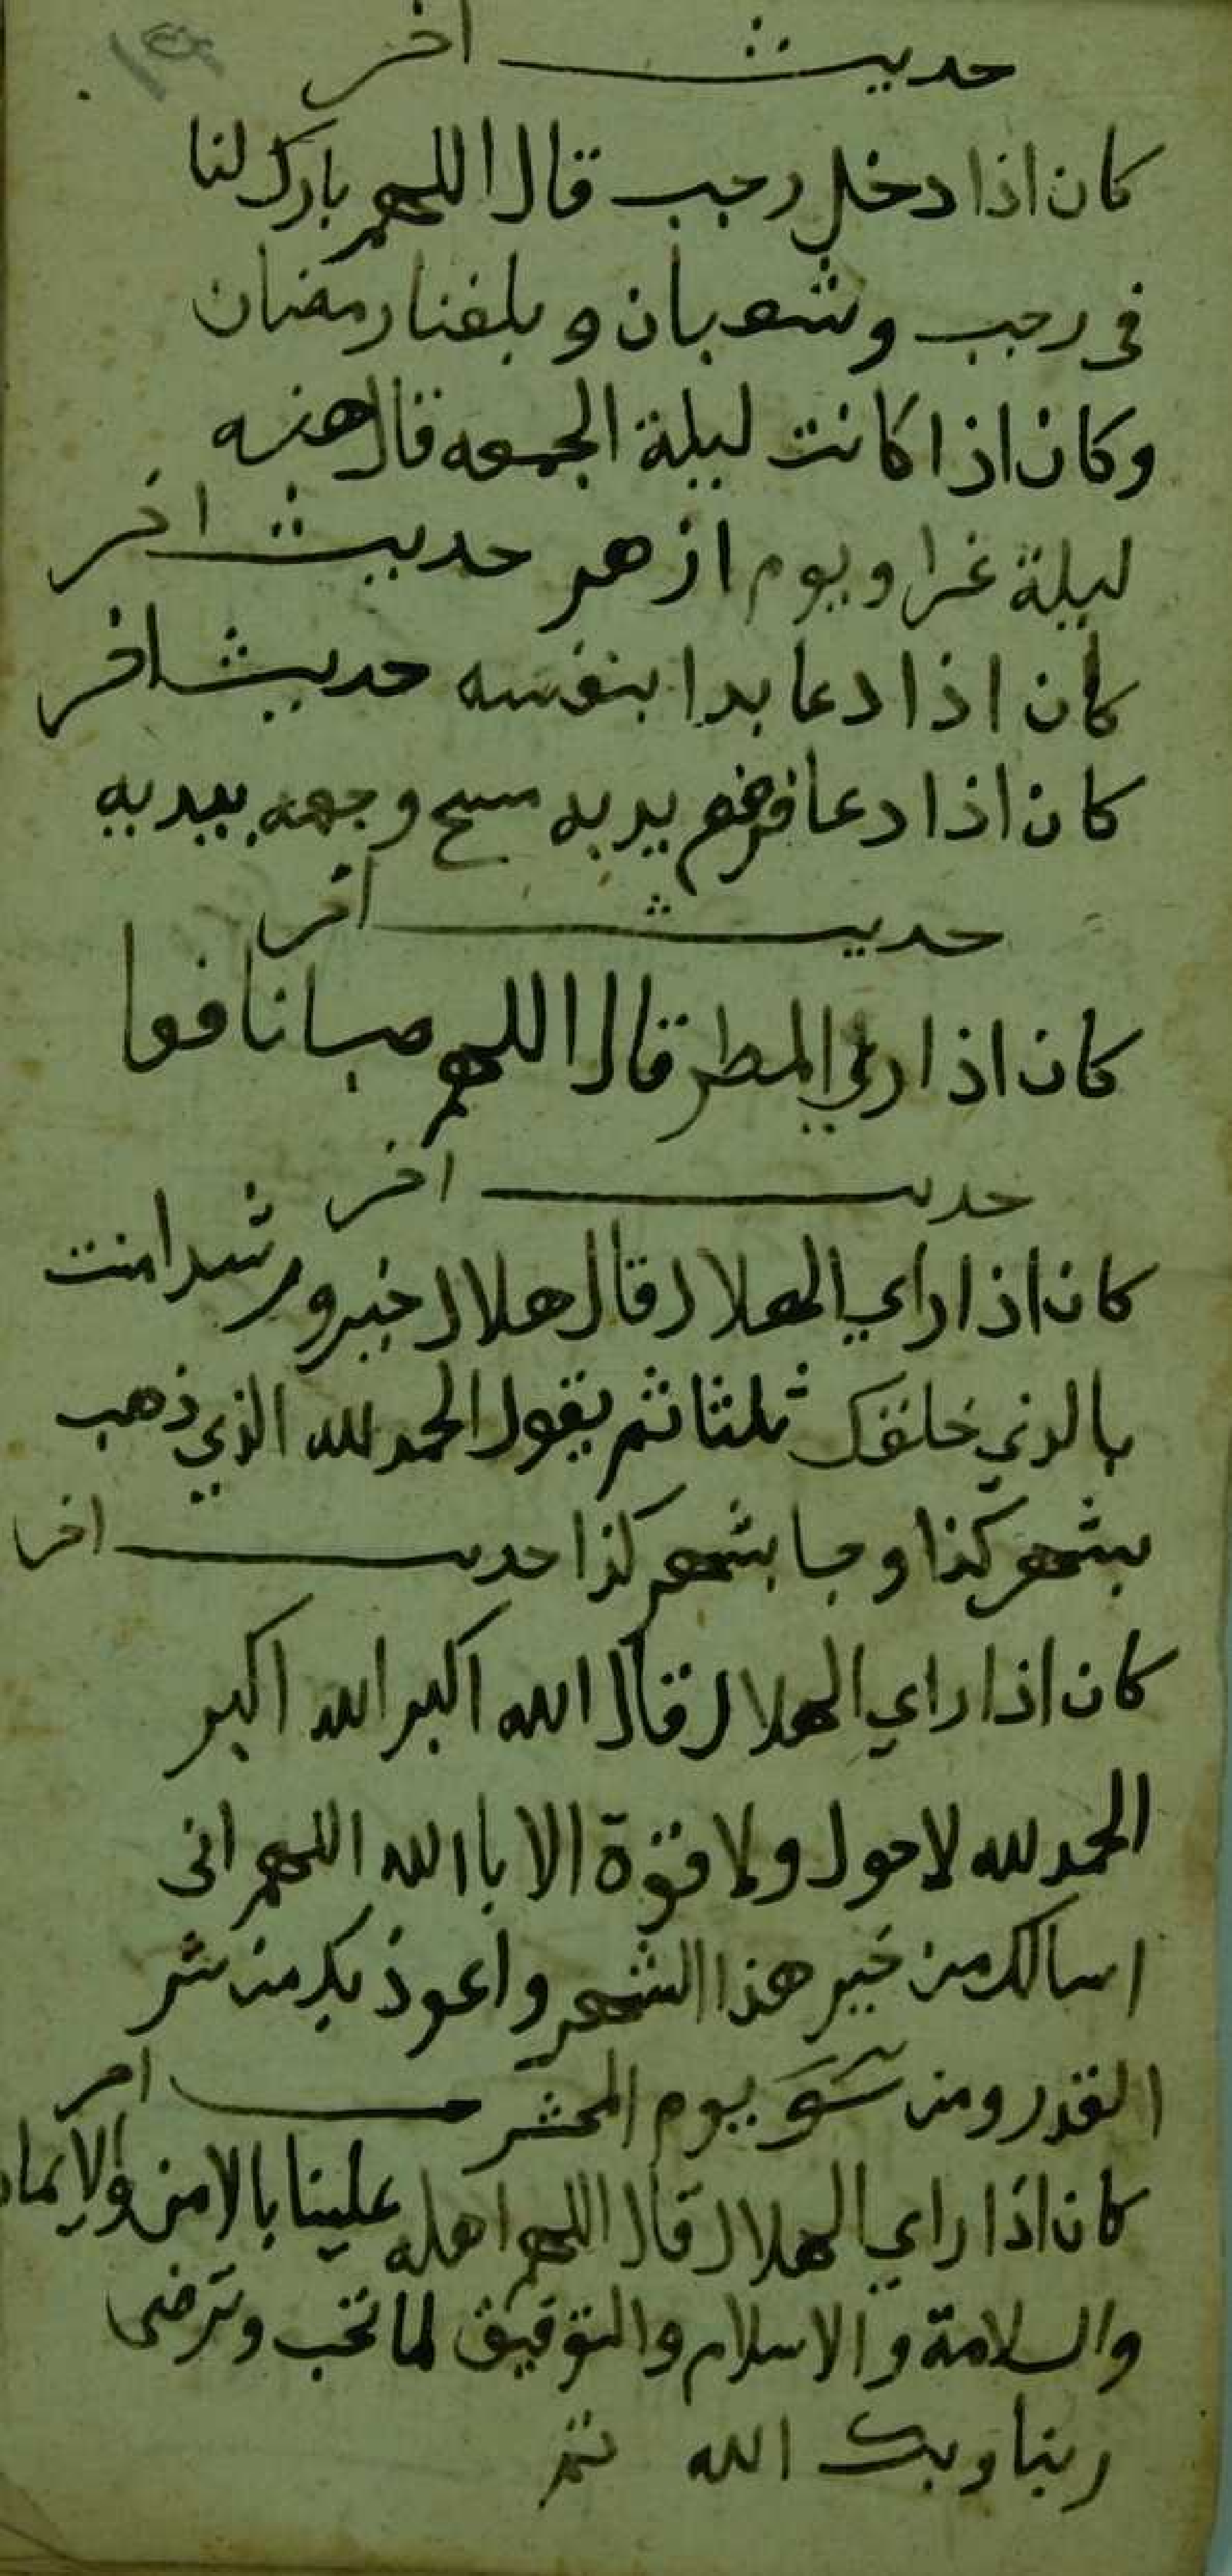 حديث اخر
كان اذا دخل رجب قال اللهم بارك لنا
في رجب وشعبان وبلغنا رمضان
وكان اذا كانت ليلة الجمعه قال هذه
ليلة غرا ويوم ازهر حديث اخر
كان اذا دعا بدا بنفسه حديث اخر
كان اذا دعا فرفع يديه مسح وجهه بيديه
حديث اخر
كان اذا راي المطر قال اللهم صبا نافعا
حديث اخر
كان اذا راي الهلال قال هلال خير ورشد امنت
بالذي خلقك ثلثا ثم يقول الحمد لله الذي ذهب
بشهر كذا وجا بشهر كذا حديث اخر
كان اذا راي الهلال قال الله اكبر الله اكبر
الحمد لله لا حول ولا قوة الا باالله اللهم اني
اسالك من خير هذا الشهر واعوذ بك من شر
القدر ومن سوء يوم المحشر اخر
كان اذا راي الهلال قال اللهم اهله علينا بالامن والايمان
والسلامة والاسلام والتوفيق لما تحب وترضى
ربنا وبك الله تم